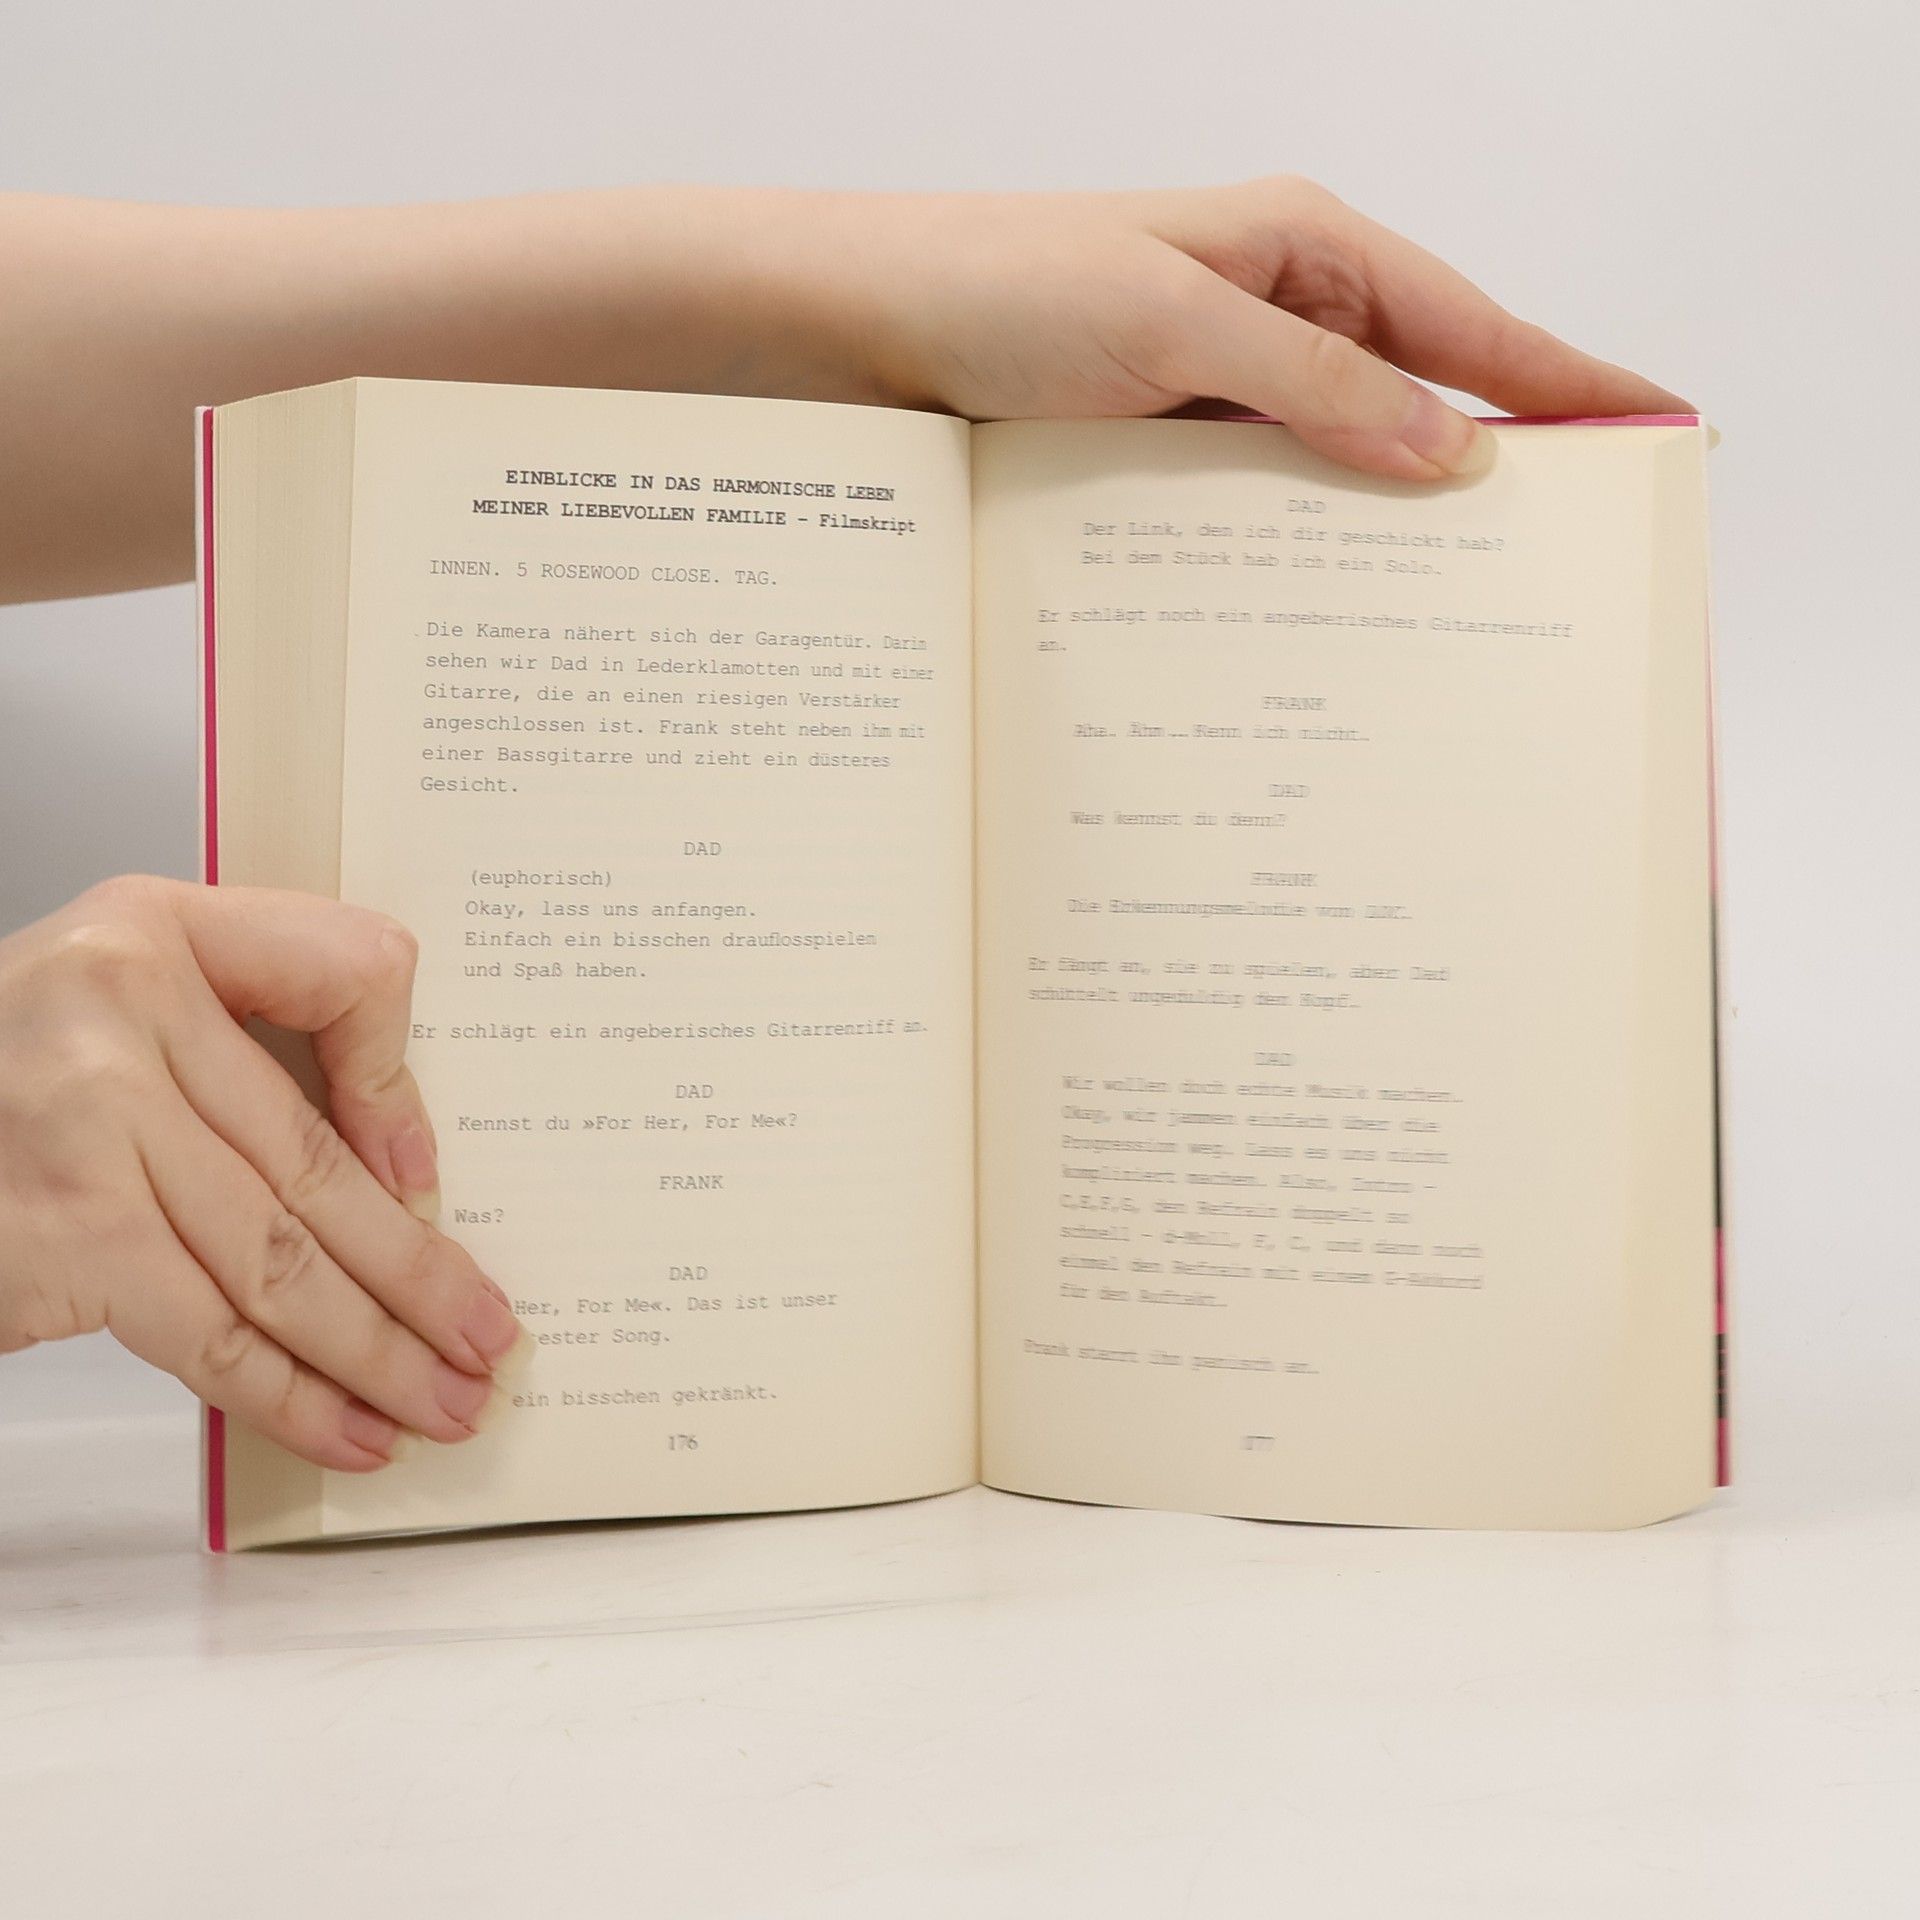 EINBLICKE IN DAS HARMONISCHE LEBEN
MEINER LIEBEVOLLEN FAMILIE – Filmskript
INNEN. 5 ROSEWOOD CLOSE. TAG.
Die Kamera nähert sich der Garagentür. Darin
sehen wir Dad in Lederklamotten und mit einer
Gitarre, die an einen riesigen Verstärker
angeschlossen ist. Frank steht neben ihm mit
einer Bassgitarre und zieht ein düsteres
Gesicht.
DAD
(euphorisch)
Okay, lass uns anfangen.
Einfach ein bisschen drauflosspielen
und Spaß haben.
Er schlägt ein angeberisches Gitarrenriff an.
DAD
Kennst du »For Her, For Me«?
FRANK
Was?
DAD
Her, For Me«. Das ist unser
Song.
ein bisschen gekränkt.
176
DAD
Der Link, den ich dir geschickt hab?
Bei dem Stück hab ich ein Solo.
Er schlägt noch ein angeberisches Gitarrenriff
an.
FRANK
Aha. Ähm … Kenn ich nicht.
DAD
Was kennst du denn?
FRANK
Die Erkennungsmelodie von
Er fängt an, sie zu spielen, aber Dad
schüttelt ungeduldig den Kopf.
DAD
Wir wollen doch echte Musik machen.
Okay, wir jammen einfach über die
Progression weg. Lass es uns nicht
kompliziert machen. Also, Intro –
C,E,F,G, den Refrain doppelt so
schnell – d-Moll, F, C, und dann noch
einmal den Refrain mit einem G-Akkord
für den Auftakt.
Frank starrt ihn panisch an.
177